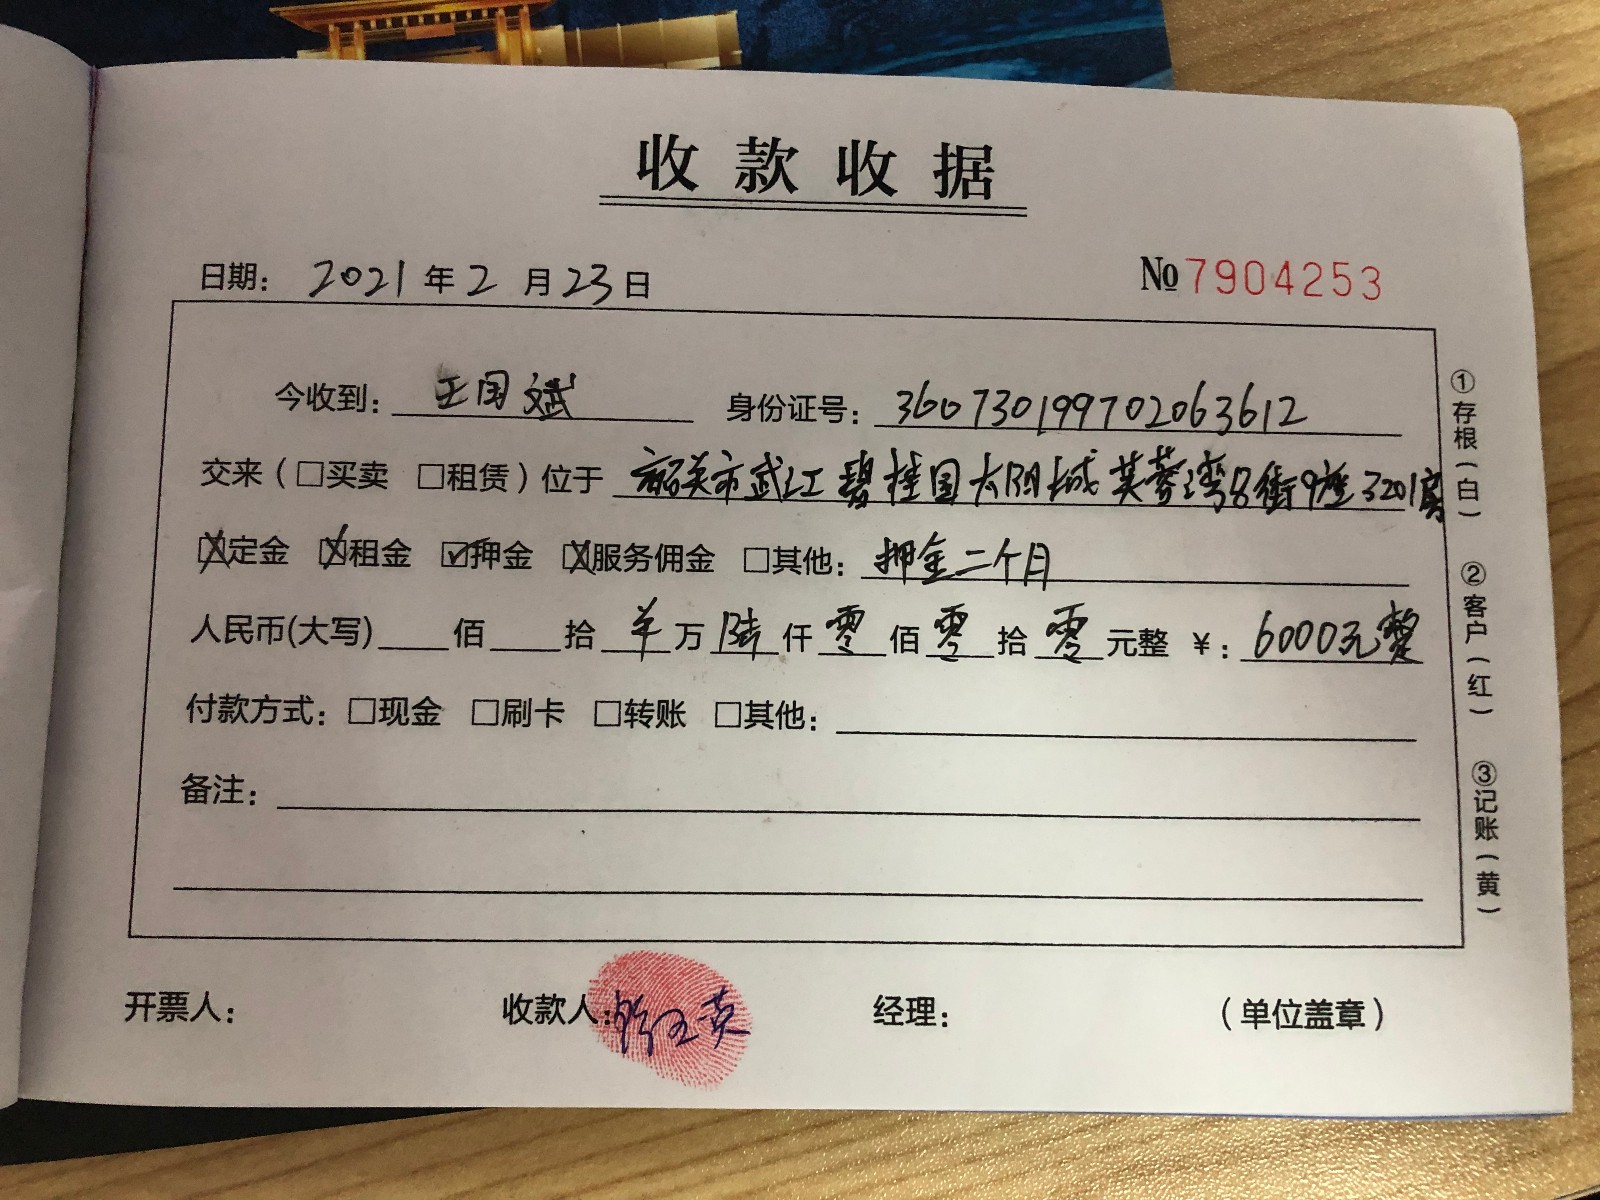 收款收据
日期： 2021年2月23日 № 7904253
今收到：王国斌 身份证号：360730199702063612
交来（□买卖 □租赁）位于 韶关市武江碧桂园太阳城芙蓉湾8街9座3201房
☒定金 ☒租金 ☑押金 ☒服务佣金 □其他：押金二个月
人民币(大写)____佰____拾 羊 万 陆 仟 零 佰 零 拾 零 元整 ￥：6000元整
付款方式：□现金 □刷卡 □转账 □其他：
备注：
开票人： 收款人： 经理： （单位盖章）
①存根（白）
②客户（红）
③记账（黄）